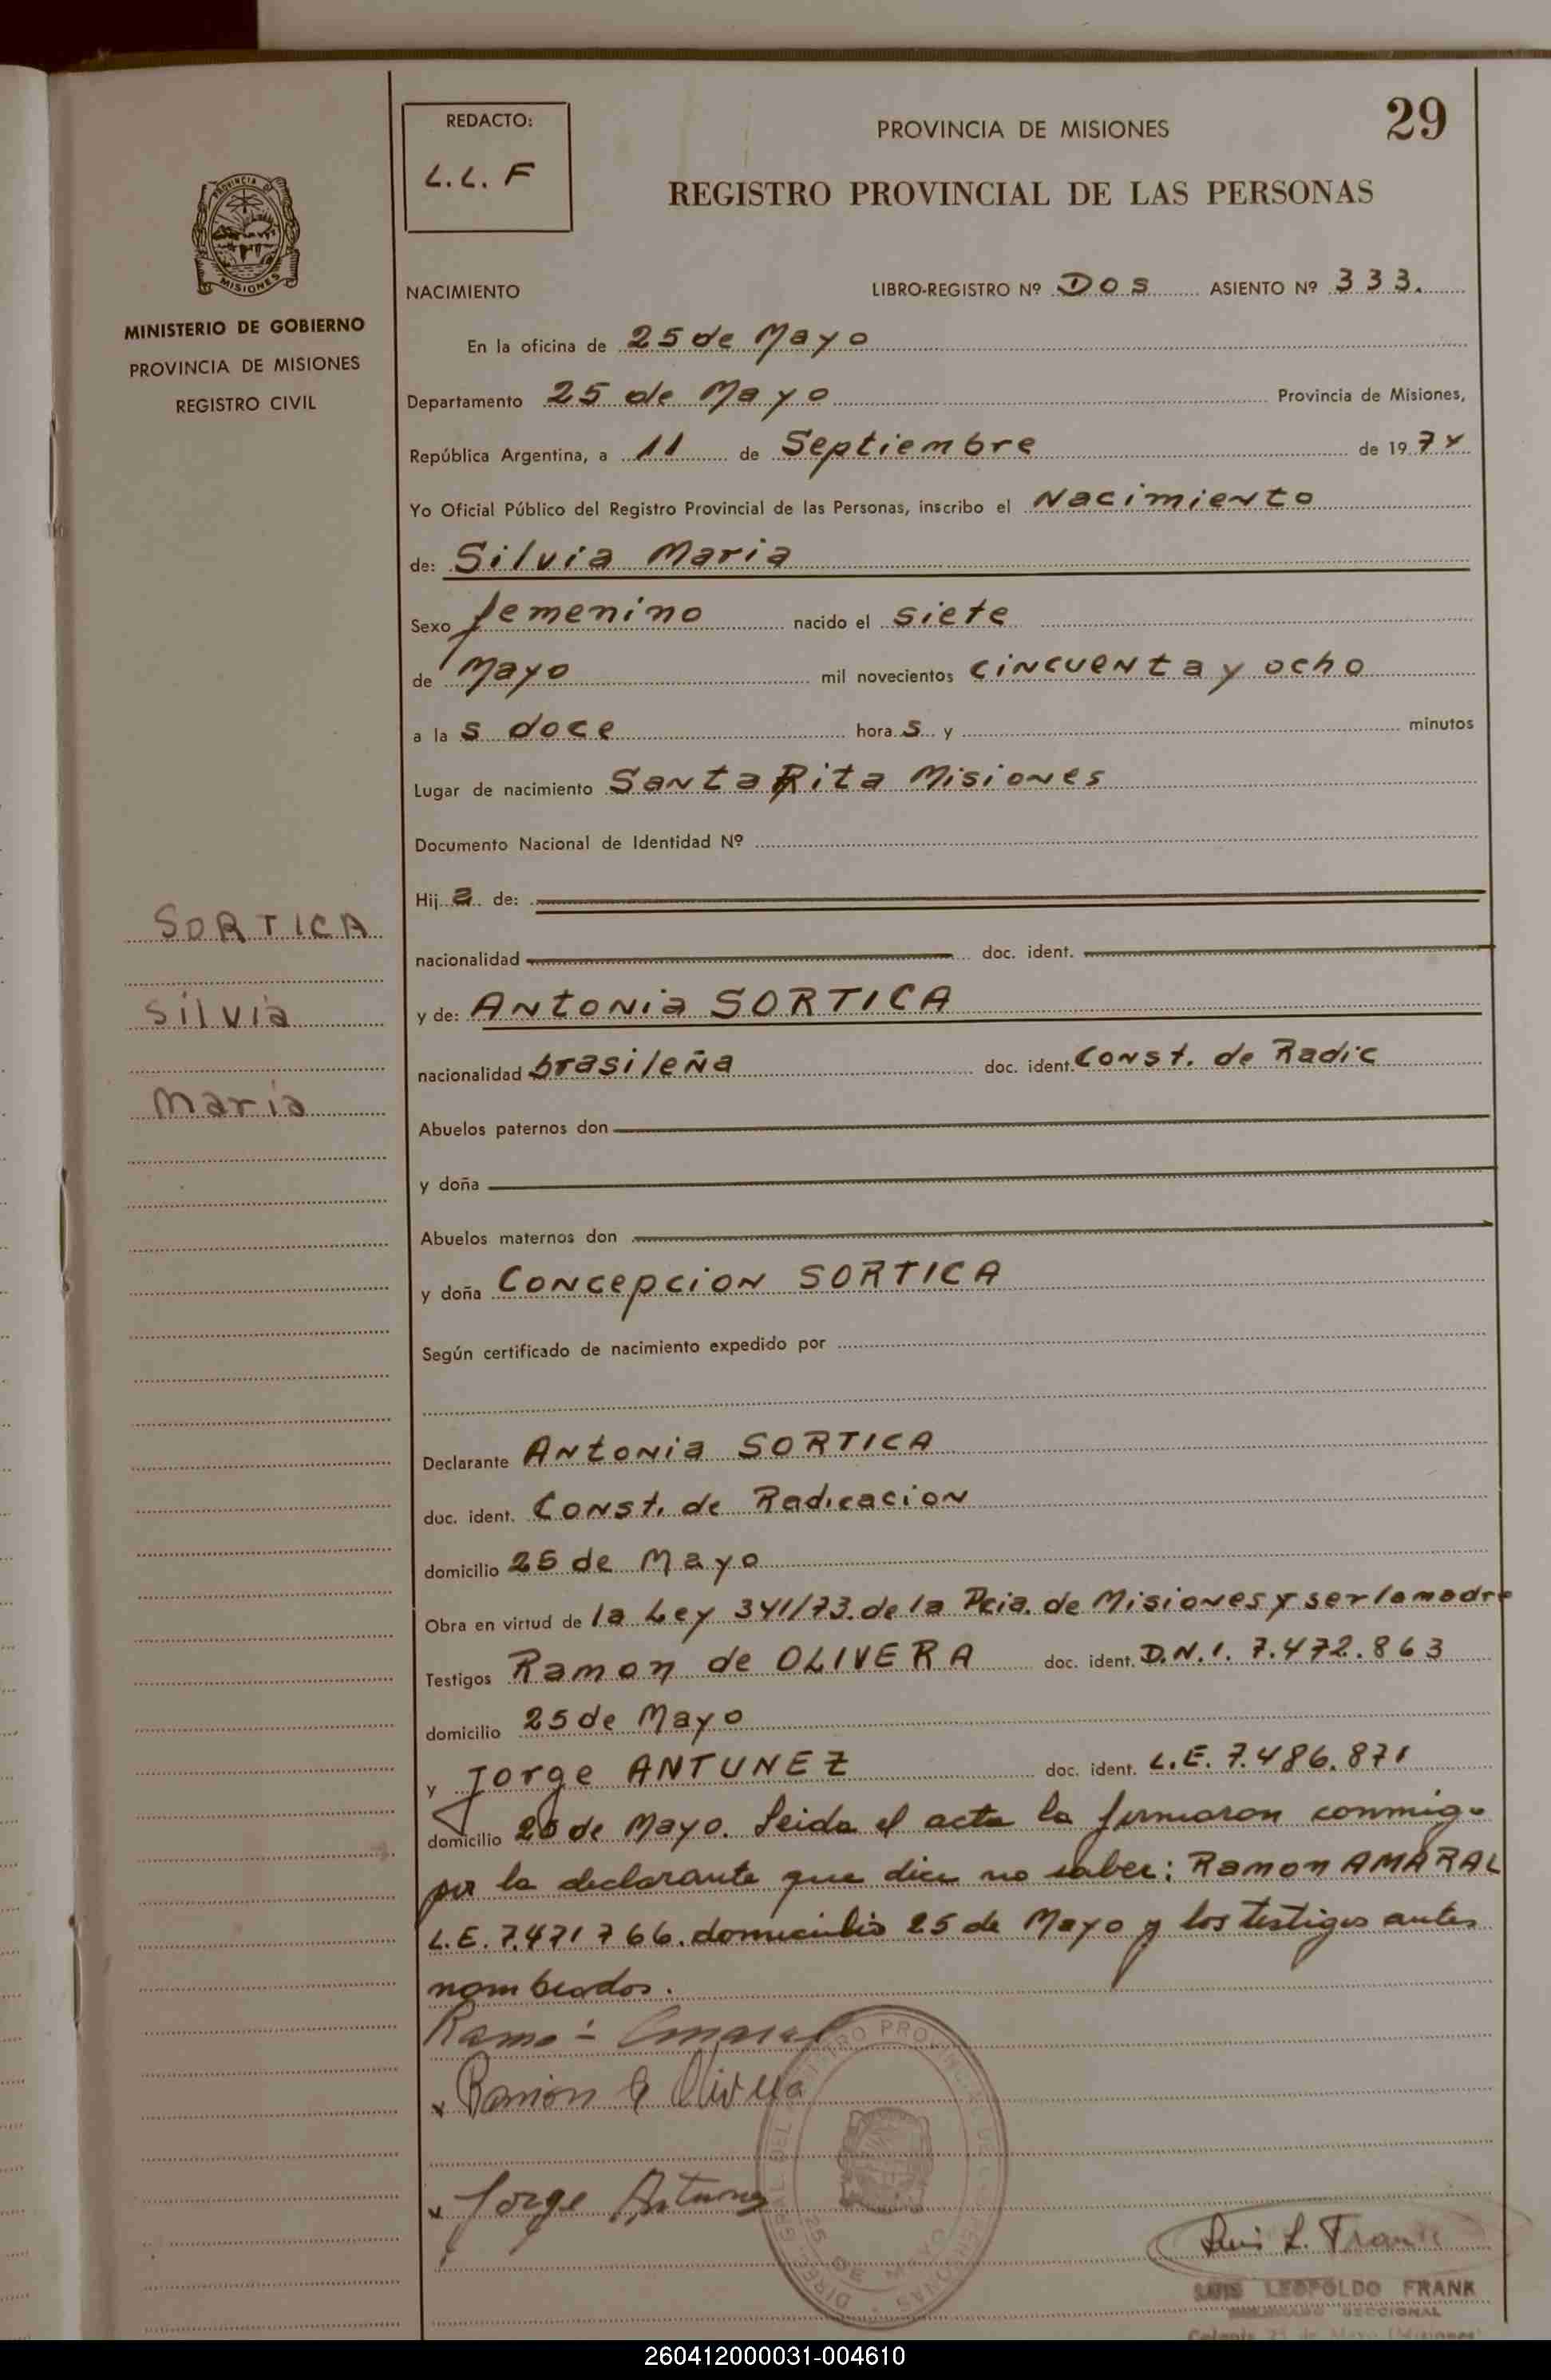 29
REDACTO:
L.L. F
PROVINCIA DE MISIONES
REGISTRO PROVINCIAL DE LAS PERSONAS
PROVINCIA DE
MISIONES
MINISTERIO DE GOBIERNO
PROVINCIA DE MISIONES
REGISTRO CIVIL
NACIMIENTO LIBRO-REGISTRO Nº DOS ASIENTO Nº 333.
En la oficina de 25 de Mayo
Departamento 25 de Mayo Provincia de Misiones,
República Argentina, a 11 de Septiembre de 1974
Yo Oficial Público del Registro Provincial de las Personas, inscribo el Nacimiento
de: Silvia Maria
Sexo femenino nacido el siete
de Mayo mil novecientos cincuenta y ocho
a la s doce hora s y minutos
Lugar de nacimiento Santa Rita Misiones
Documento Nacional de Identidad Nº
Hij a de:
SORTICA
nacionalidad doc. ident.
Silvia
y de: Antonia SORTICA
nacionalidad brasileña doc. ident. Const. de Radic
Maria
Abuelos paternos don
y doña
Abuelos maternos don
y doña Concepcion SORTICA
Según certificado de nacimiento expedido por
Declarante Antonia SORTICA
doc. ident. Const. de Radicacion
domicilio 25 de Mayo
Obra en virtud de la Ley 341/73. de la Pcia. de Misiones y ser la madre
Testigos Ramon de OLIVERA doc. ident. D.N.I. 7.472.863
domicilio 25 de Mayo
y Jorge ANTUNEZ doc. ident. L.E. 7.486.871
domicilio 25 de Mayo. Leida el acta la firmaron conmigo
por la declarante que dice no saber: Ramon AMARAL
L.E. 7.471766. domicilio 25 de Mayo y los testigos antes
nombrados.
Ramon Amaral
x Ramon de Olivera
x Jorge Antunez
25 DE MAYO
Luis L. Frank
LUIS LEOPOLDO FRANK
SECCIONAL
260412000031-004610